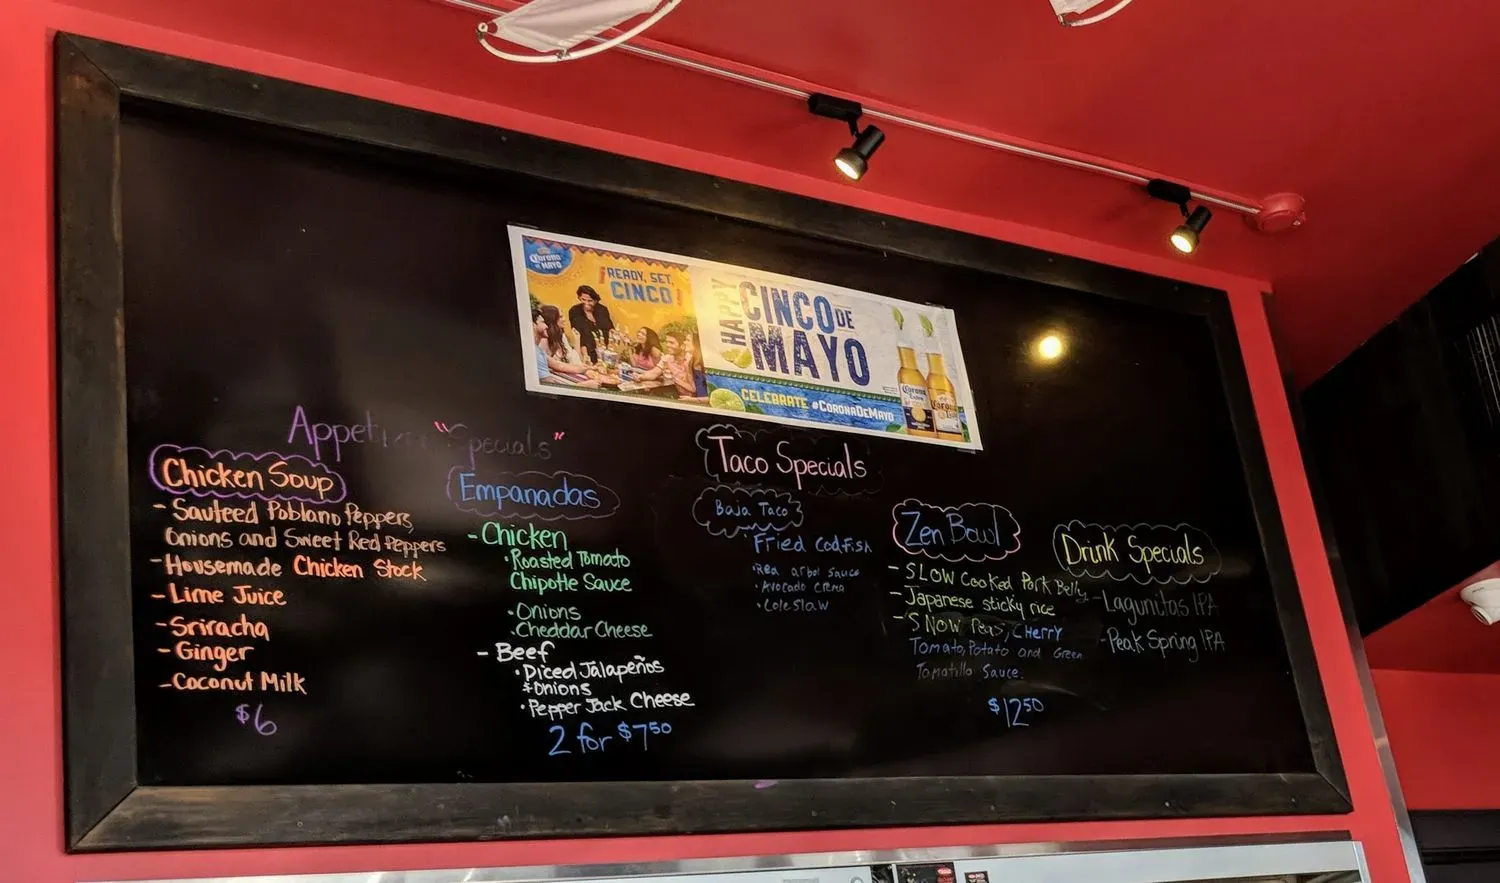 Corona
de MAYO
¡READY, SET,
CINCO!
HAPPY
CINCO DE
MAYO
CELEBRATE #CORONADEMAYO
Corona
Extra
Appeti "Specials"
Chicken Soup
- Sauteed Poblano Peppers
Onions and Sweet Red Peppers
- Housemade Chicken Stock
- Lime Juice
- Sriracha
- Ginger
- Coconut Milk
$6
Empanadas
- Chicken
• Roasted Tomato
Chipotle Sauce
• Onions
• Cheddar Cheese
- Beef
• Diced Jalapeños
& Onions
• Pepper Jack Cheese
2 for $750
Taco Specials
Baja Taco
• Fried Codfish
• Red arbol sauce
• Avocado crema
• Coleslaw
Zen Bowl
- SLOW Cooked Pork Belly
- Japanese sticky rice
- SNOW Peas, CHERRY
Tomato, Potato and Green
Tomatillo Sauce.
$1250
Drink Specials
- Lagunitas IPA
- Peak Spring IPA